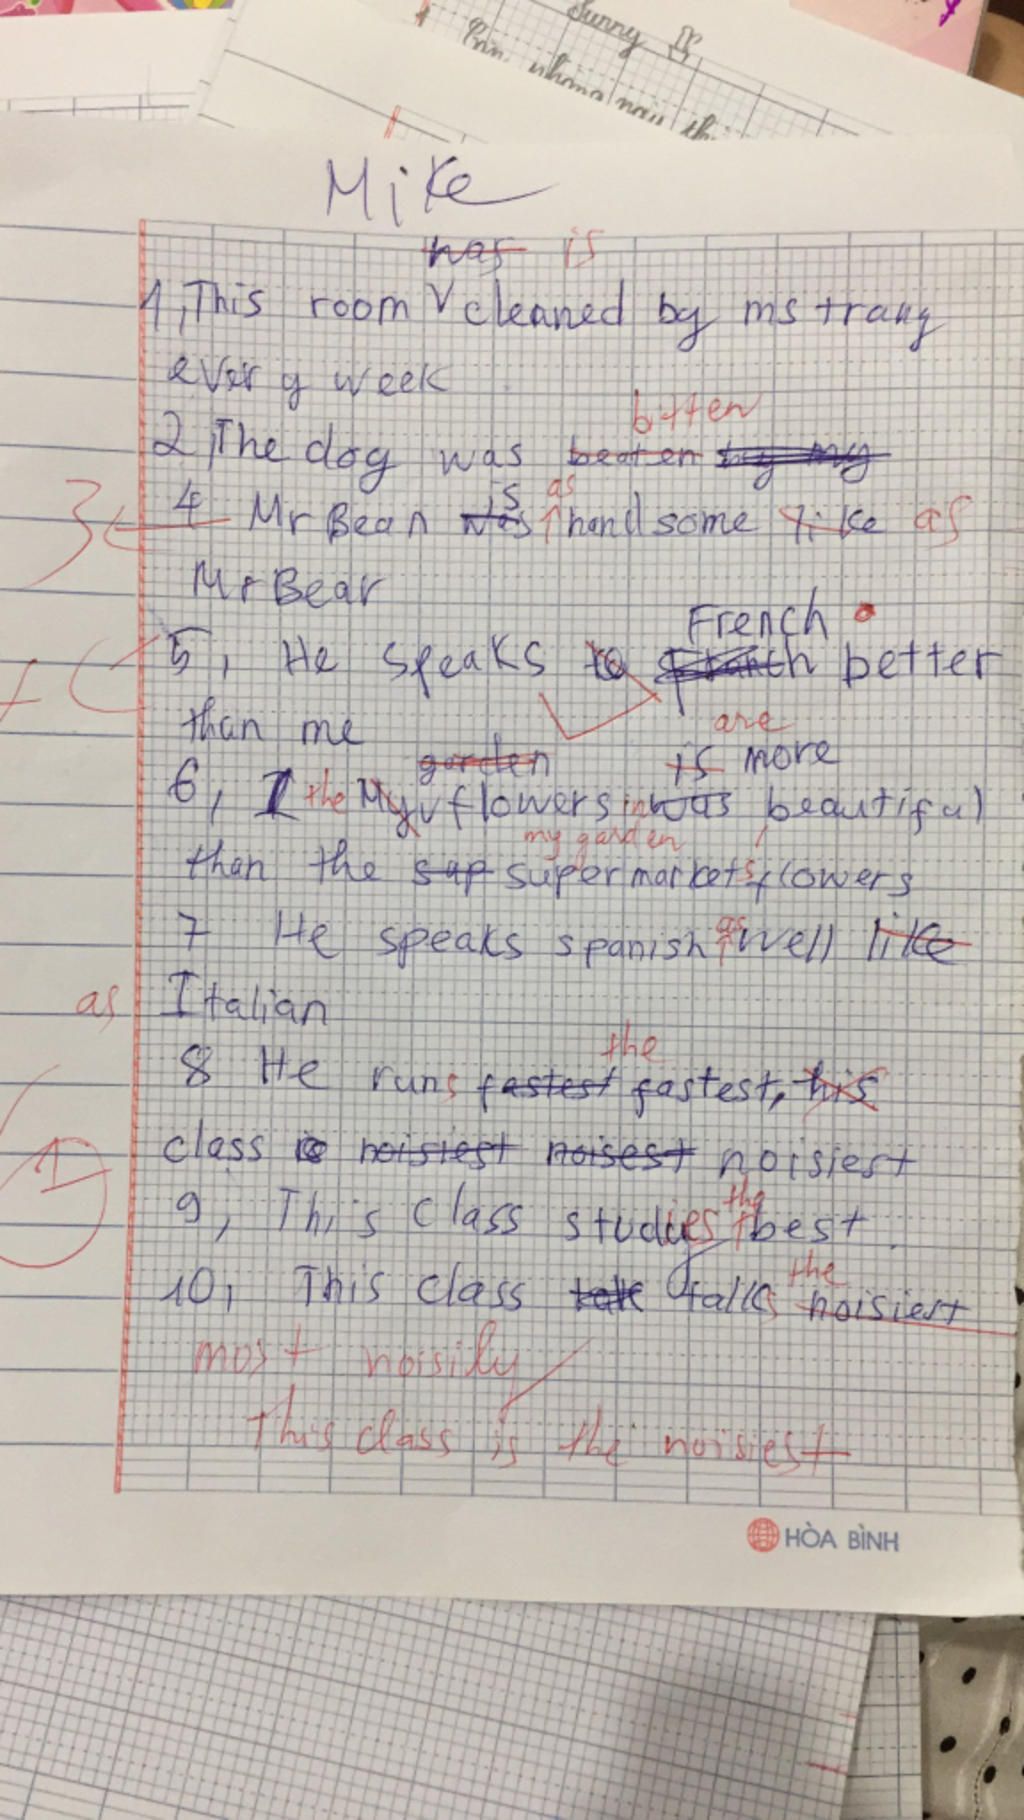 Sunny
Mike
was is
1, This room V cleaned by ms trang
every week
bitten
2, The dog was beaten by my
is as
3 4 Mr Bean was handsome like as
Mr Bear
French
5, He speaks to French better
than me
are
garden is more
6, I the My flowers in was beautiful
my garden
than the sup supermarket's flowers
as
7 He speaks spanish well like
as Italian
the
8 He runs fastest fastest, this
class is noisiest noisest noisiest
1
the
9, This class studies best.
the
10, This class talk talks noisiest
most noisily
This class is the noisiest
HÒA BÌNH